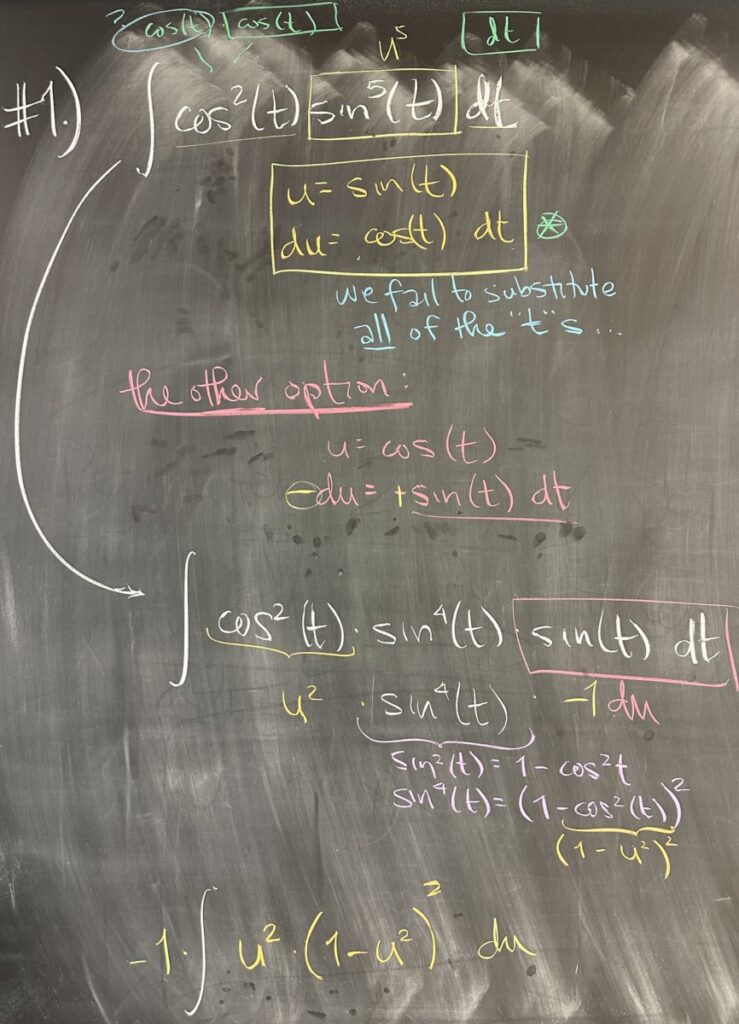 ? cos(t) cos(t)
u⁵
dt
#1.) ∫ cos²(t) sin⁵(t) dt
u = sin(t)
du = cos(t) dt *
we fail to substitute
all of the "t"s...
the other option:
u = cos(t)
-du = +sin(t) dt
∫ cos²(t) · sin⁴(t) · sin(t) dt
u² · sin⁴(t) · -1 du
sin²(t) = 1 - cos²t
sin⁴(t) = (1 - cos²(t))²
(1 - u²)²
-1 · ∫ u² · (1 - u²)² du